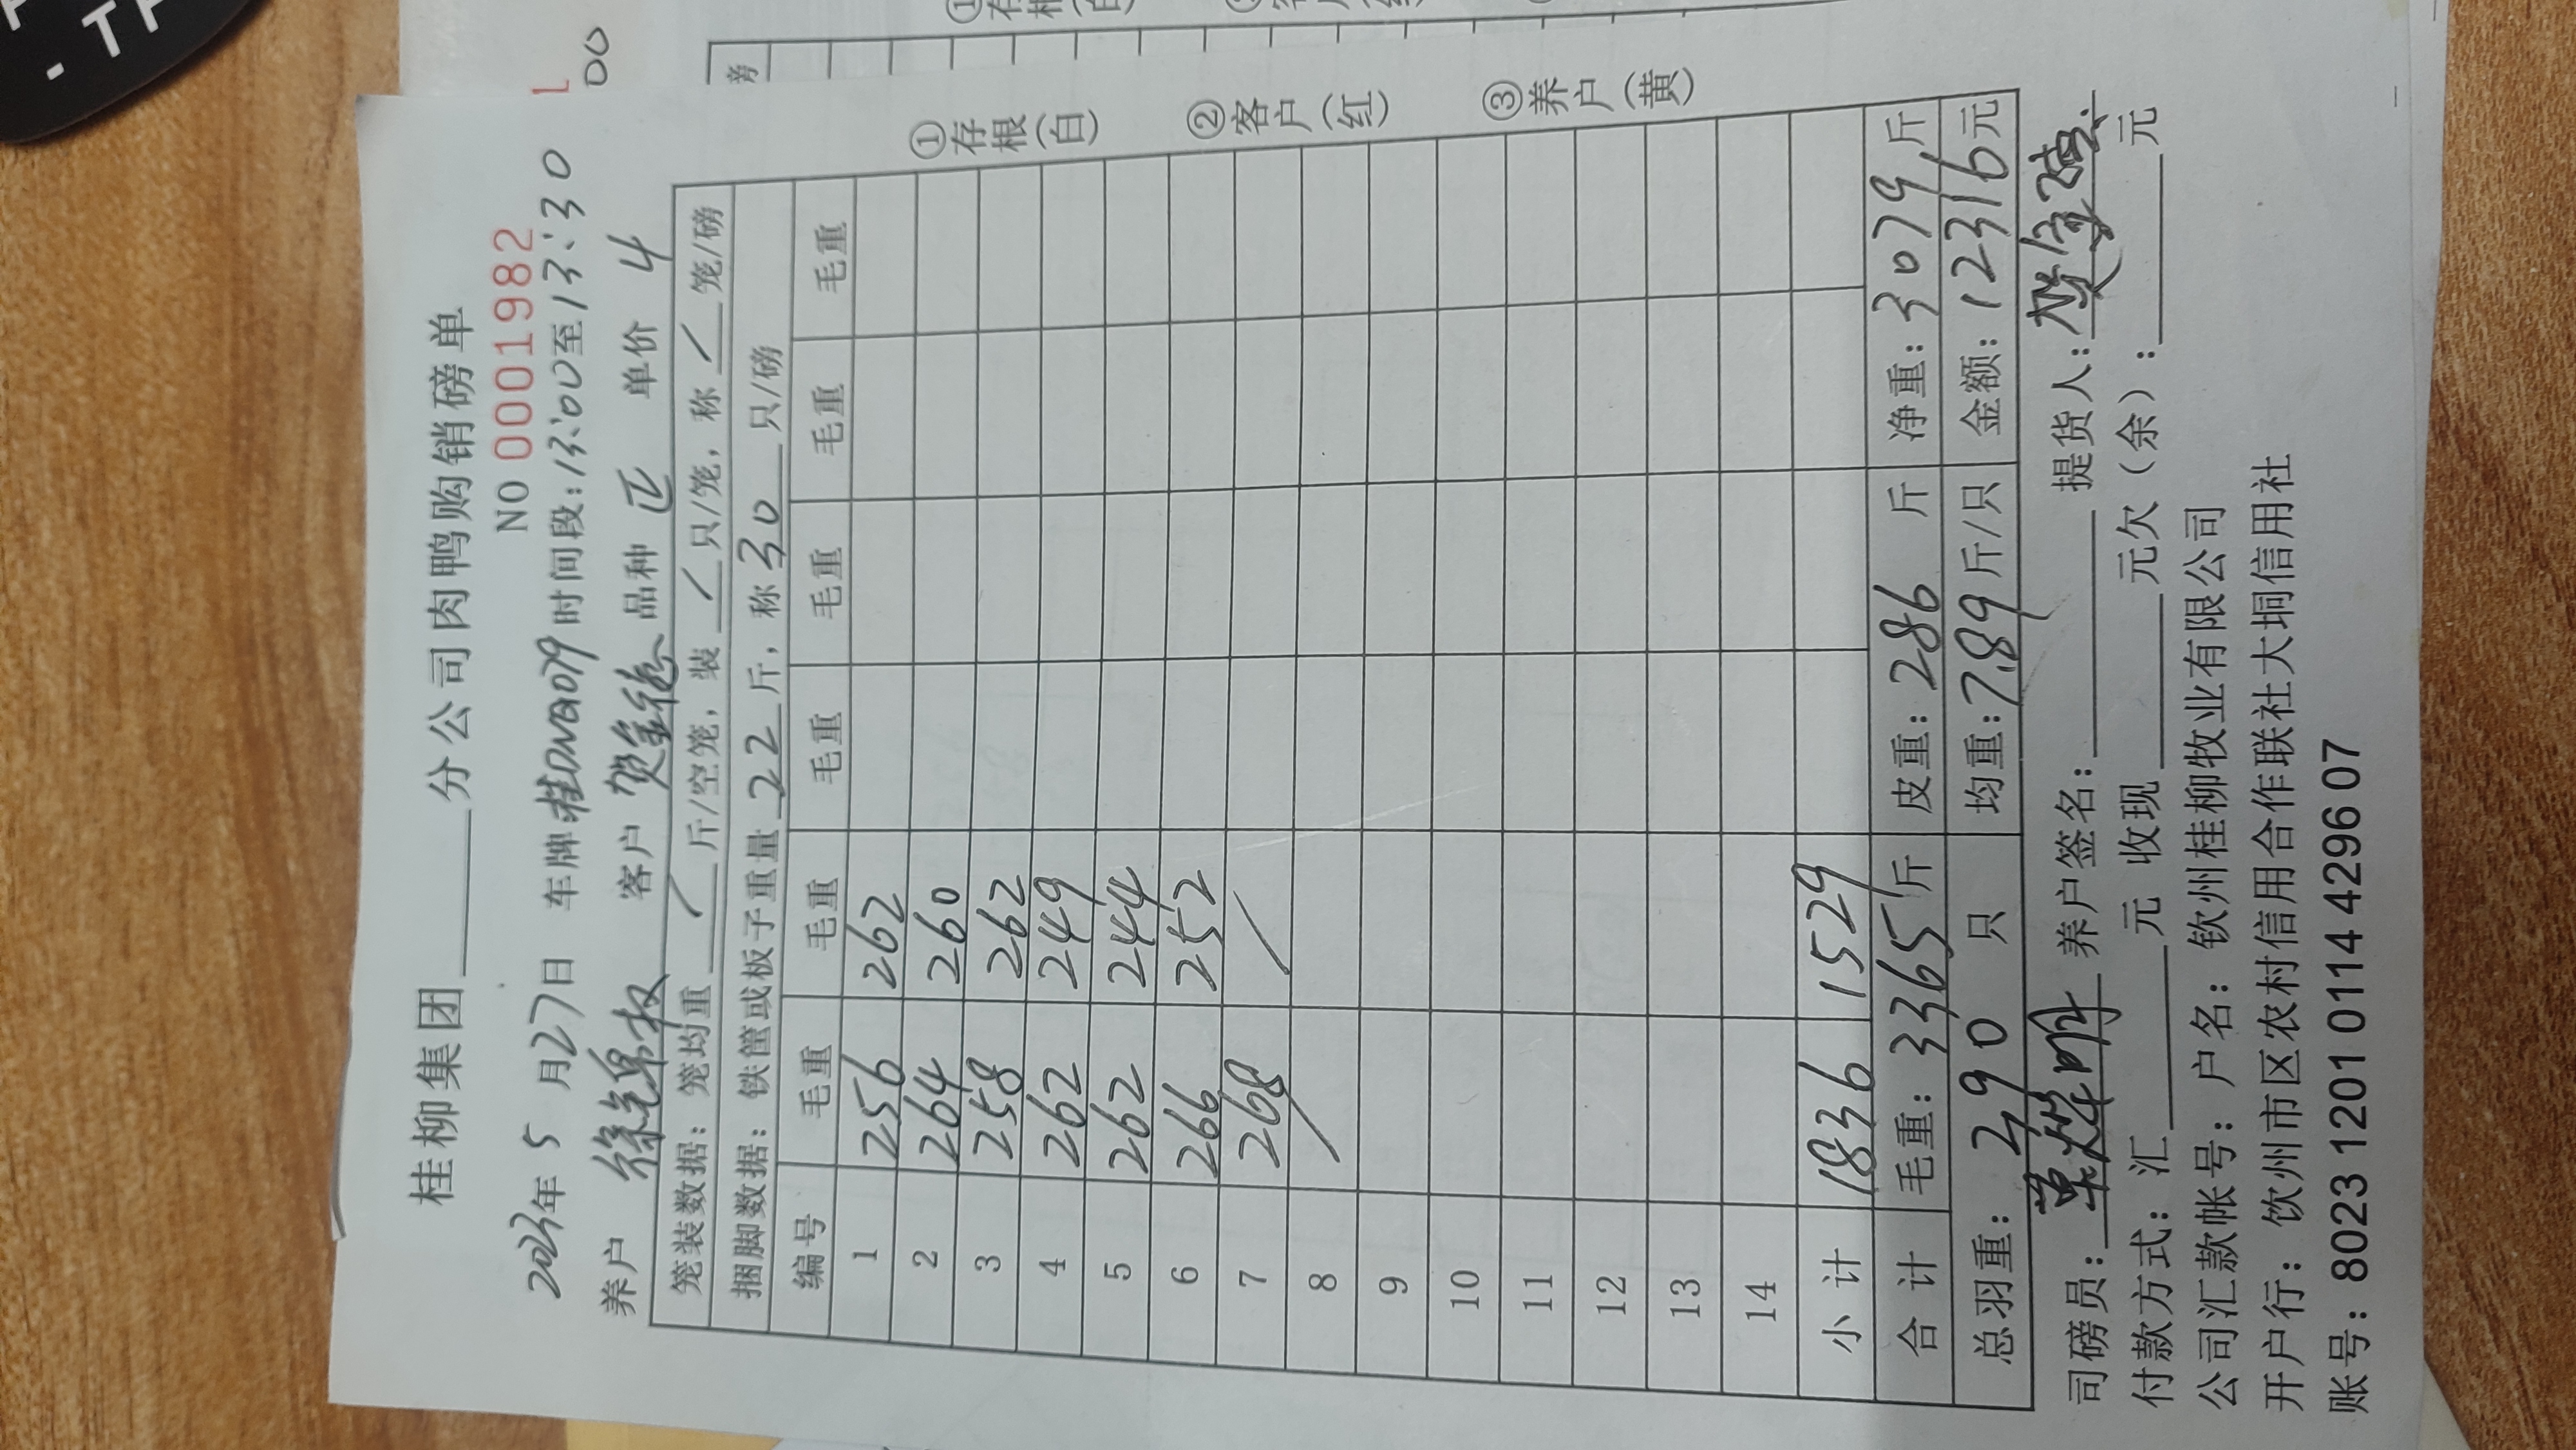 桂柳集团 分公司肉鸭购销磅单
NO 0001982
2023年 5 月27日 车牌 桂DNQ079 时间段:13:00至13:30
养户 客户 贺金德 品种 正 单价 4
笼装数据: 笼均重 / 斤/空笼, 装 / 只/笼, 称 / 笼/磅
捆脚数据: 铁筐或板子重量 22 斤, 称 30 只/磅
编号 毛重 毛重 毛重 毛重 毛重 毛重
1 256 262
2 264 260
3 258 262
4 262 249
5 262 244
6 266 252
7 268 /
8 /
9
10
11
12
13
14
小 计 1836 1529
合 计 毛重: 3365 斤 皮重: 286 斤 净重: 3079 斤
总羽重: 290 只 均重: 7.89 斤/只 金额: 12316 元
司磅员: 养户签名: 提货人:
付款方式: 汇 元 收现 元欠 (余) : 元
公司汇款帐号: 户名: 钦州桂柳牧业有限公司
开户行: 钦州市区农村信用合作联社大垌信用社
账号: 8023 1201 0114 4296 07
①存根(白)
②客户(红)
③养户(黄)